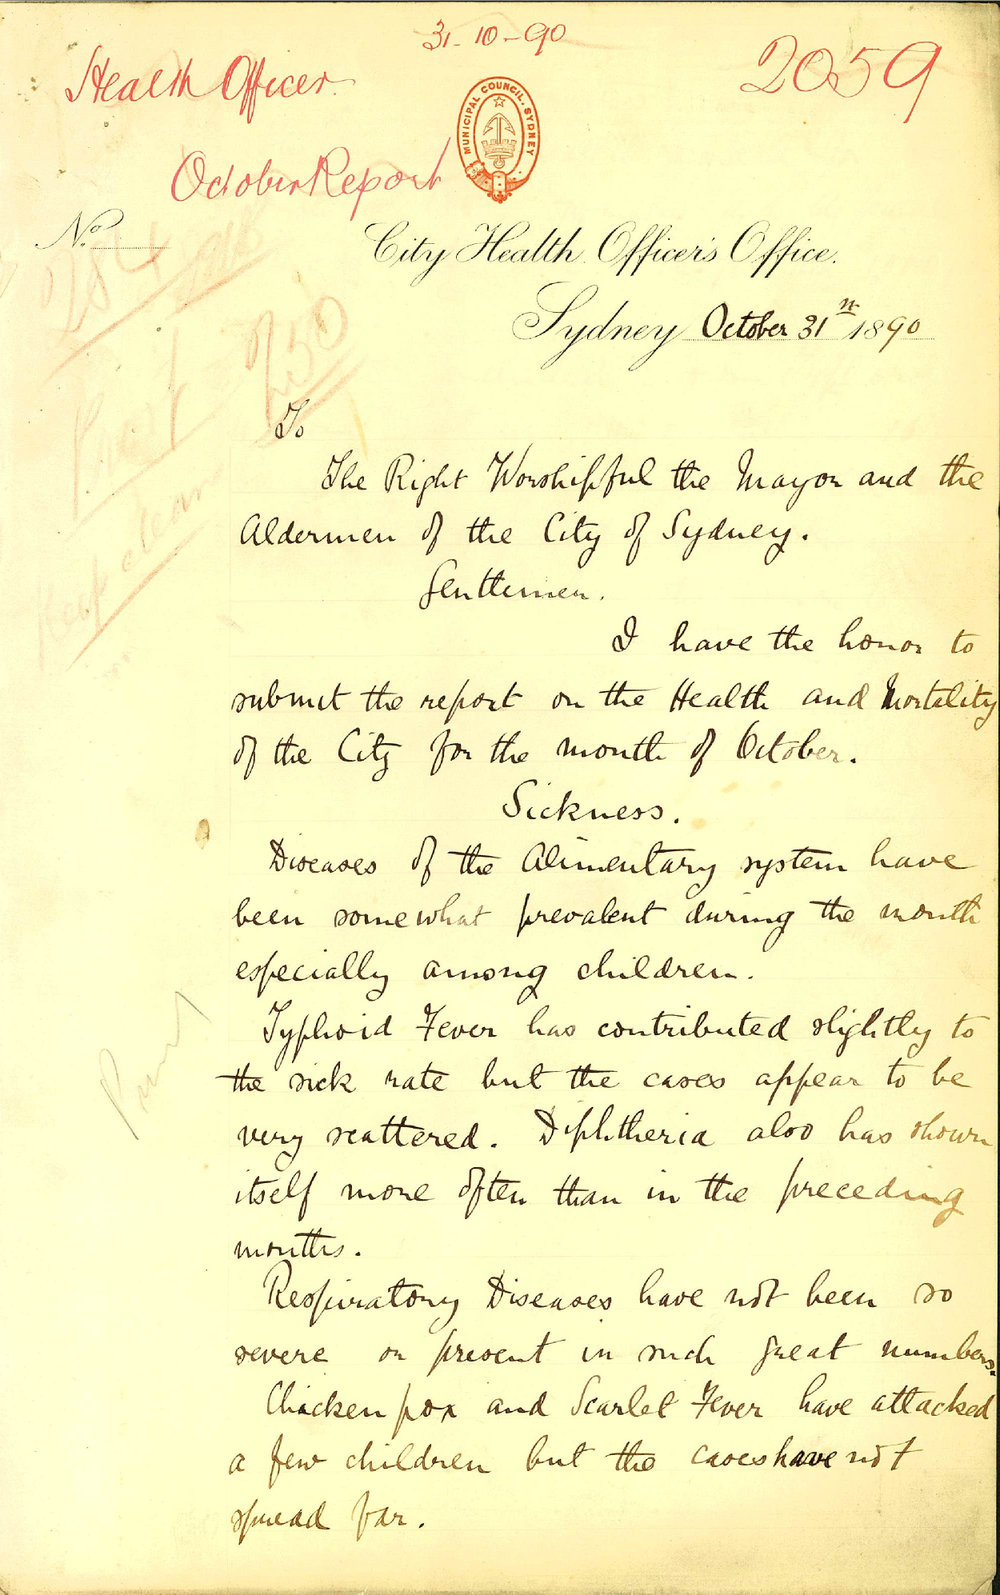 31-10-90
Health Officer
2059
MUNICIPAL COUNCIL. SYDNEY
October Report
No.
City Health Officer's Office.
Sydney October 31st 1890
To
The Right Worshipful the Mayor and the
Aldermen of the City of Sydney.
Gentlemen.
I have the honor to
submit the report on the Health and Mortality
of the City for the month of October.
Sickness.
Diseases of the Alimentary system have
been somewhat prevalent during the month
especially among children.
Typhoid Fever has contributed slightly to
the sick rate but the cases appear to be
very scattered. Diphtheria also has shown
itself more often than in the preceding
months.
Respiratory Diseases have not been so
severe or present in such great numbers.
Chicken pox and Scarlet Fever have attacked
a few children but the cases have not
spread far.